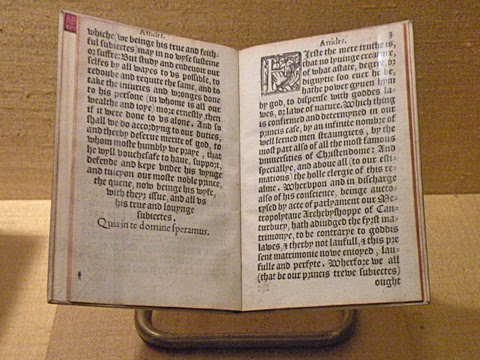 Articles.
whiche (we beinge his true and feith-
ful subiectes) may in no wyse susteine
or suffre: But study and endeuour our
selfes by all wayes to vs possible, to
redoube and requite the same, and to
take the iniuries and wronges done
to his persone (in whome is all our
welthe and ioye) more ernestly, then
if it were done to vs alone. And so
shall we do accordyng to our duties,
and therby deserue merite of god, to
whom moste humbly we praye, that
he wyll vouchesafe to haue, support,
defende and kepe vnder his wynge
and tuicyon our moste noble prince,
the quene, now beinge his wyfe,
with theyr issue, and all vs
his true and louynge
subiectes.
Quia in te domine speramus.
Articles. 3
Firste the mere truthe is,
that no lyuinge creature,
of what astate, degree, or
dignyte soo euer he be,
hathe power gyuen hym
by god, to dispense with goddes la-
wes, or lawe of nature. Which thing
is confirmed and determyned in our
princis case, by an infinite nombre of
well lerned men strangiers, by the
most part also of all the most famous
vniuersities of Christendome: And
specially, and aboue all (to our esti-
mations) the holle clergie of this re-
alme. Wherupon and in discharge
also of his conscience, beinge aucto-
rysed by acte of parlyament our Me-
tropolytane Archebysshoppe of Can-
turbury, hath adiudged the fyrst ma-
trimonye, to be contrarye to goddis
lawes, & therby not laufull, & this pre
sent matrimonie now enioyed, lau-
fulle and perfyte. Wherfore we all
(that be our princis trewe subiectes)
ought